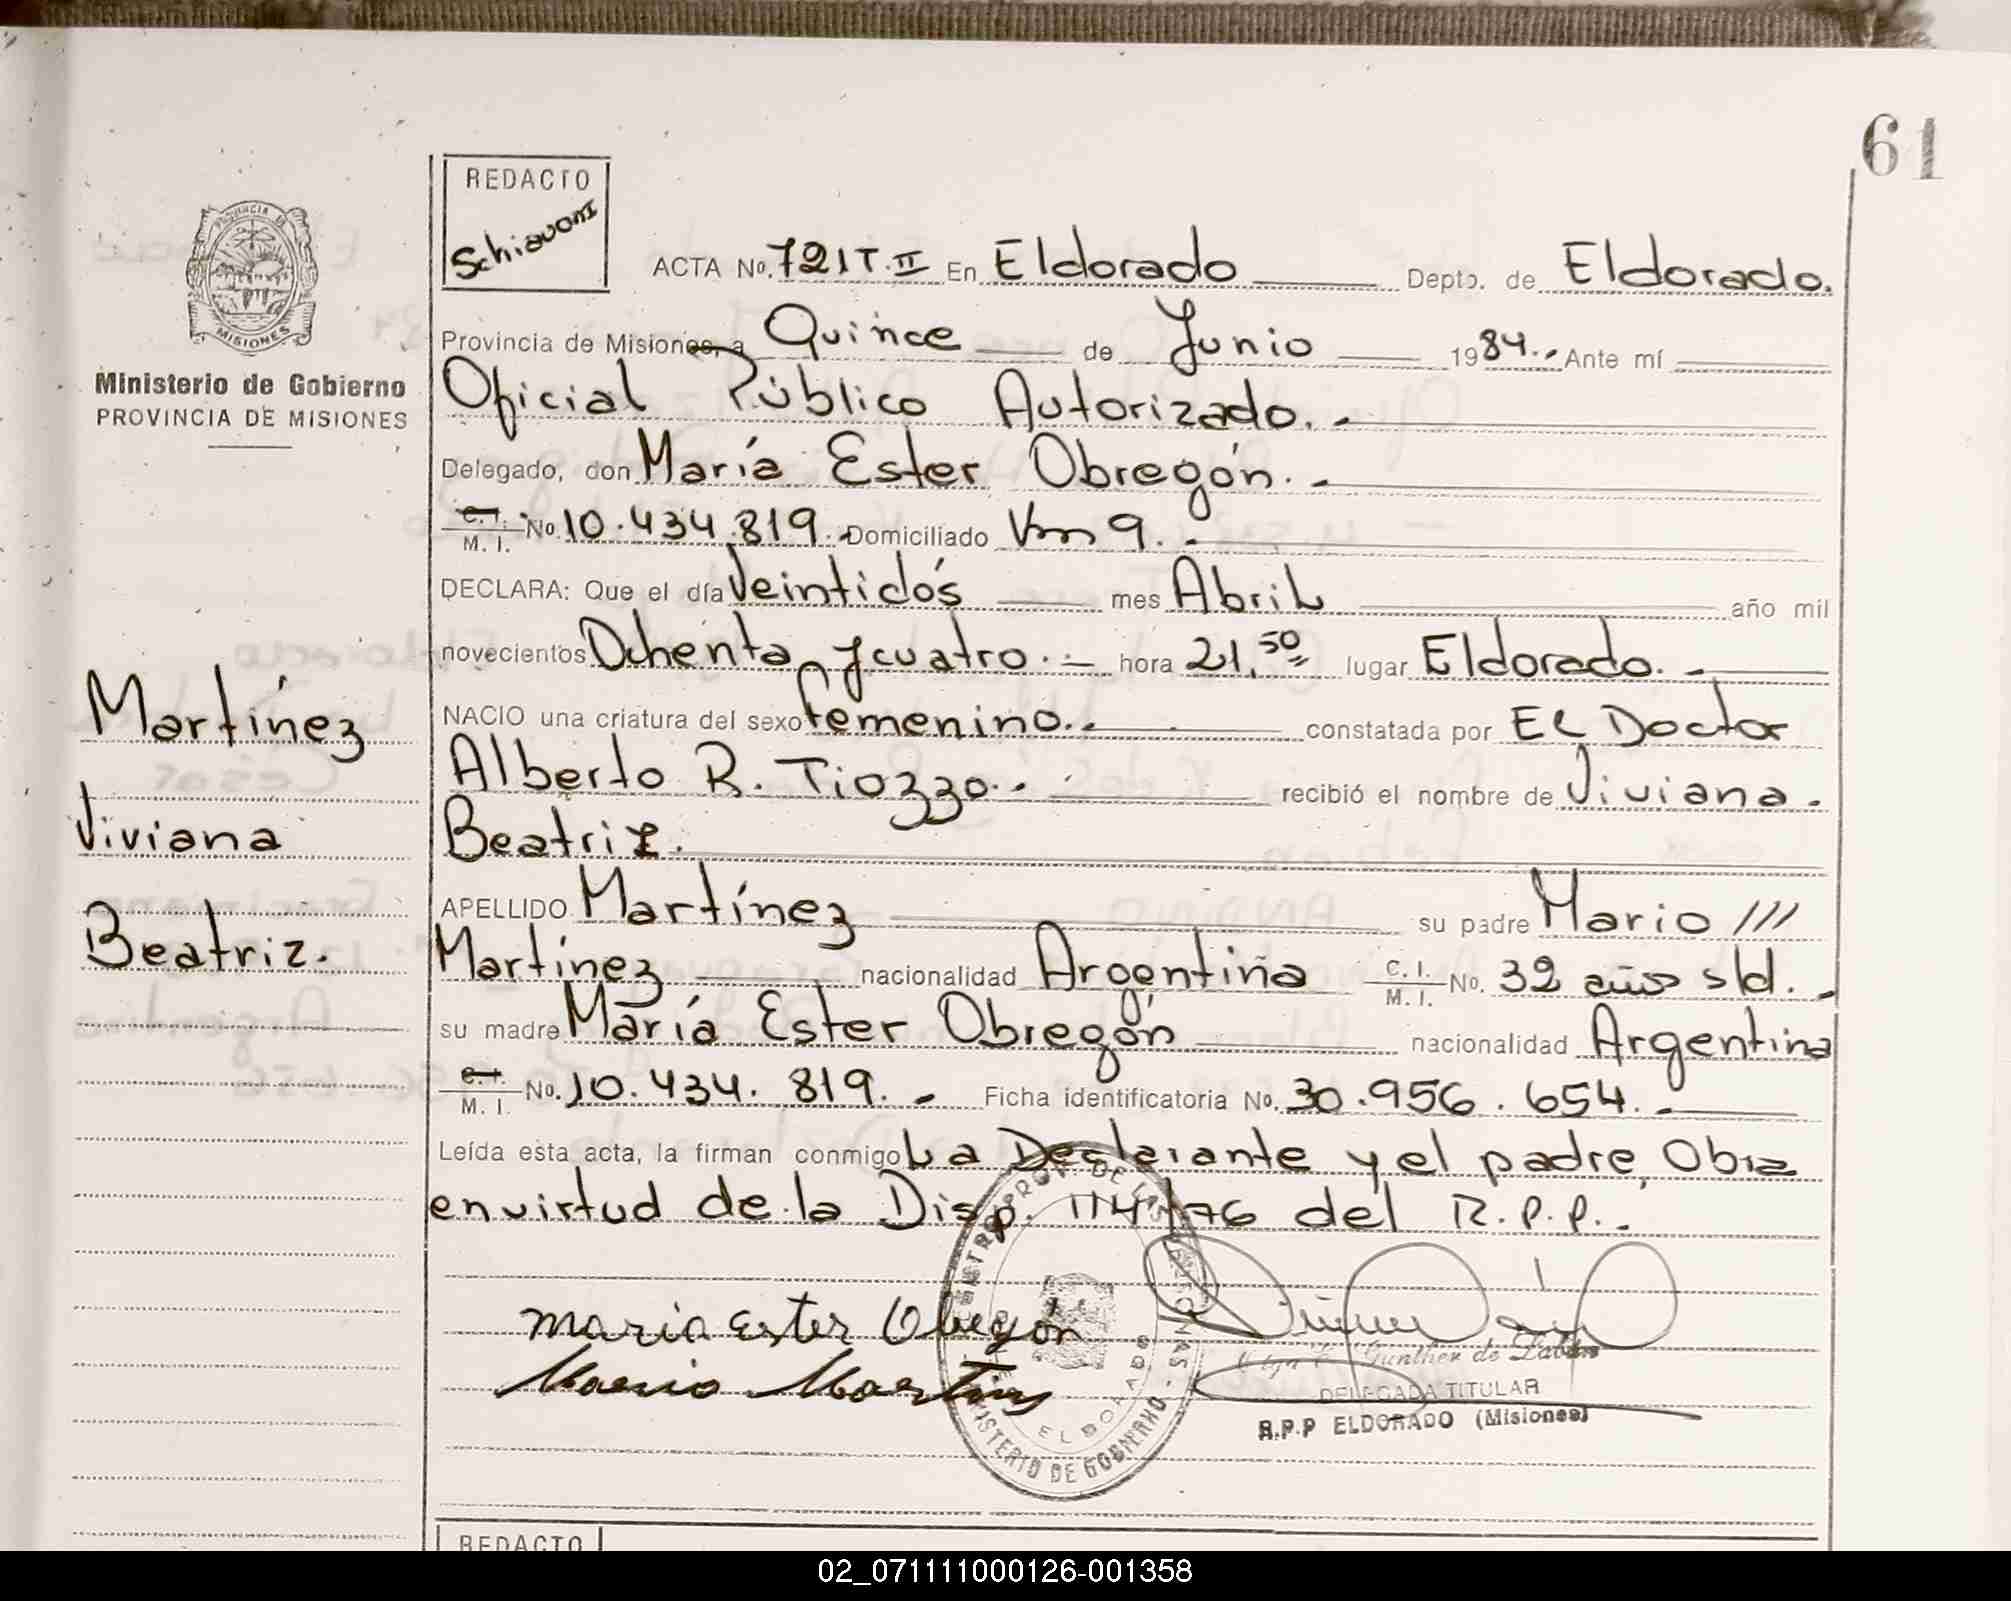 61
REDACTO
Schiavoni
PROVINCIA DE
MISIONES
Ministerio de Gobierno
PROVINCIA DE MISIONES
ACTA No. 721 T. II En Eldorado Depto. de Eldorado.
Provincia de Misiones, a Quince de Junio 1984.- Ante mí
Oficial Público Autorizado.-
Delegado, don María Ester Obregón.-
C.I. M. I. No. 10.434.819.- Domiciliado Km 9.-
DECLARA: Que el día Veintidós mes Abril año mil
novecientos Ochenta y cuatro.- hora 21,50 lugar Eldorado.-
NACIO una criatura del sexo femenino.- constatada por El Doctor
Alberto R. Tiozzo.- recibió el nombre de Viviana.
Beatriz.
APELLIDO Martínez su padre Mario ///
Martínez nacionalidad Argentina C. I. M. I. No. 32 años s/d.-
su madre María Ester Obregón nacionalidad Argentina
C.I. M. I. No. 10.434.819.- Ficha identificatoria No. 30.956.654.-
Leída esta acta, la firman conmigo La Declarante y el padre, Obra
en virtud de la Disp. 114/76 del R.P.P.-
Martínez
Viviana
Beatriz.
maria Ester Obregón
Mario Martinez
Gunther de
DELEGADA TITULAR
R.P.P ELDORADO (Misiones)
MINISTERIO DE GOBIERNO
REDACTO
02_071111000126-001358